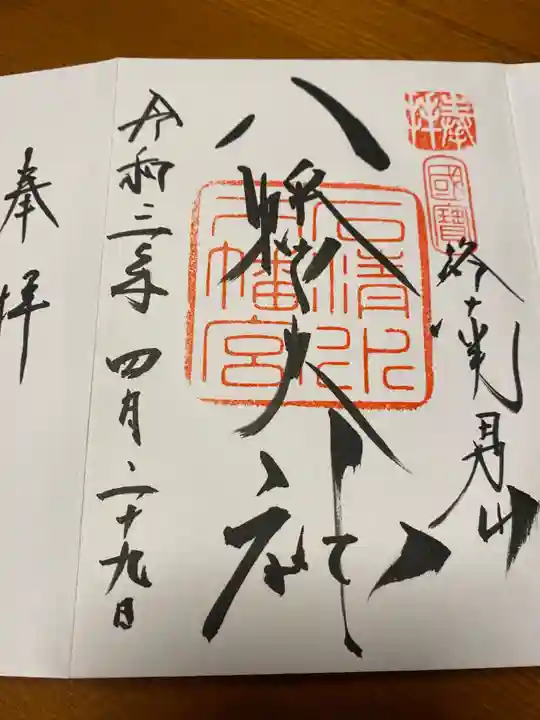 奉拝
國寶
洛南男山
石清水八幡宮
八幡大神
令和三年四月二十九日
奉拝